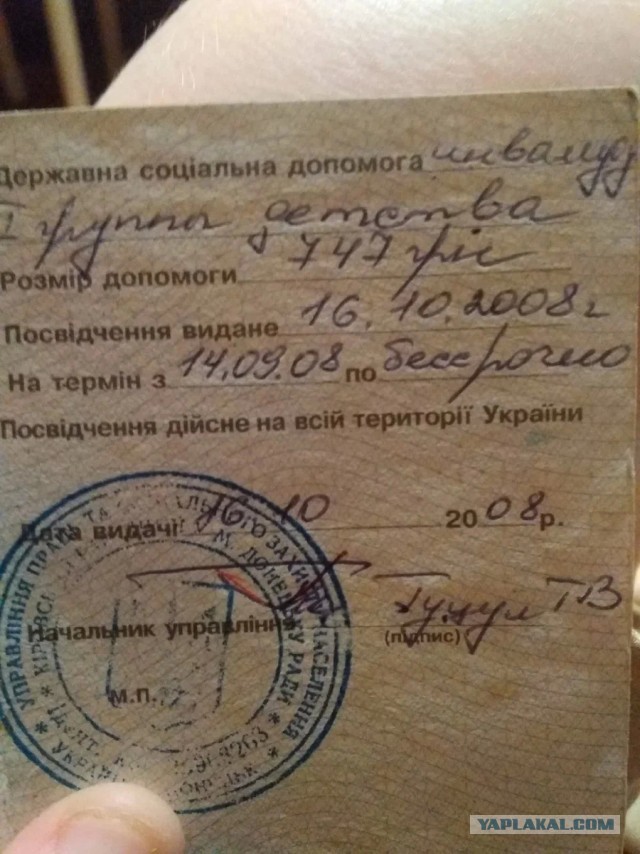 Державна соціальна допомога инвалиду
I группы детства
Розмір допомоги 747 грн
Посвідчення видане 16.10.2008 г
На термін з 14.09.08 по бессрочно
Посвідчення дійсне на всій території України
Дата видачі 16 10 2008 р.
Начальник управління Гуцул ТВ
(підпис)
М.П.
УПРАВЛІННЯ ПРАЦІ ТА СОЦІАЛЬНОГО ЗАХИСТУ НАСЕЛЕННЯ
М. ДОНЕЦЬКУ РАДИ
YAPLAKAL.COM